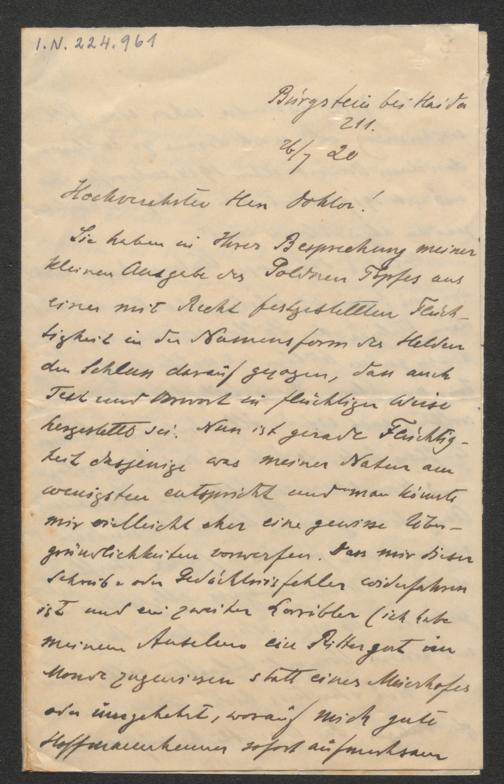 I.N. 224.961
Bürgstein bei Haida
211.
26/7 20
Hochverehrter Herr Doktor!
Sie haben in Ihrer Besprechung meiner
kleinen Ausgabe des Goldnen Topfes aus
einer mit Recht festgestellten Flüch-
tigkeit in der Namensform des Helden
den Schluss darauf gezogen, dass auch
Text und Vorwort in flüchtiger Weise
hergestellt sei. Nun ist gerade Flüchtig-
keit dasjenige was meiner Natur am
wenigsten entspricht und man könnte
mir vielleicht eher eine gewisse Über-
gründlichkeiten vorwerfen. Dass mir dieser
Schreib- oder Gedächtnisfehler widerfahren
ist und ein zweiter (ich habe
meinem Anselmus ein Rittergut im
Monde zugewiesen statt eines Meierhofes
oder umgekehrt, worauf mich gute
Hoffmannkenner sofort aufmerksam